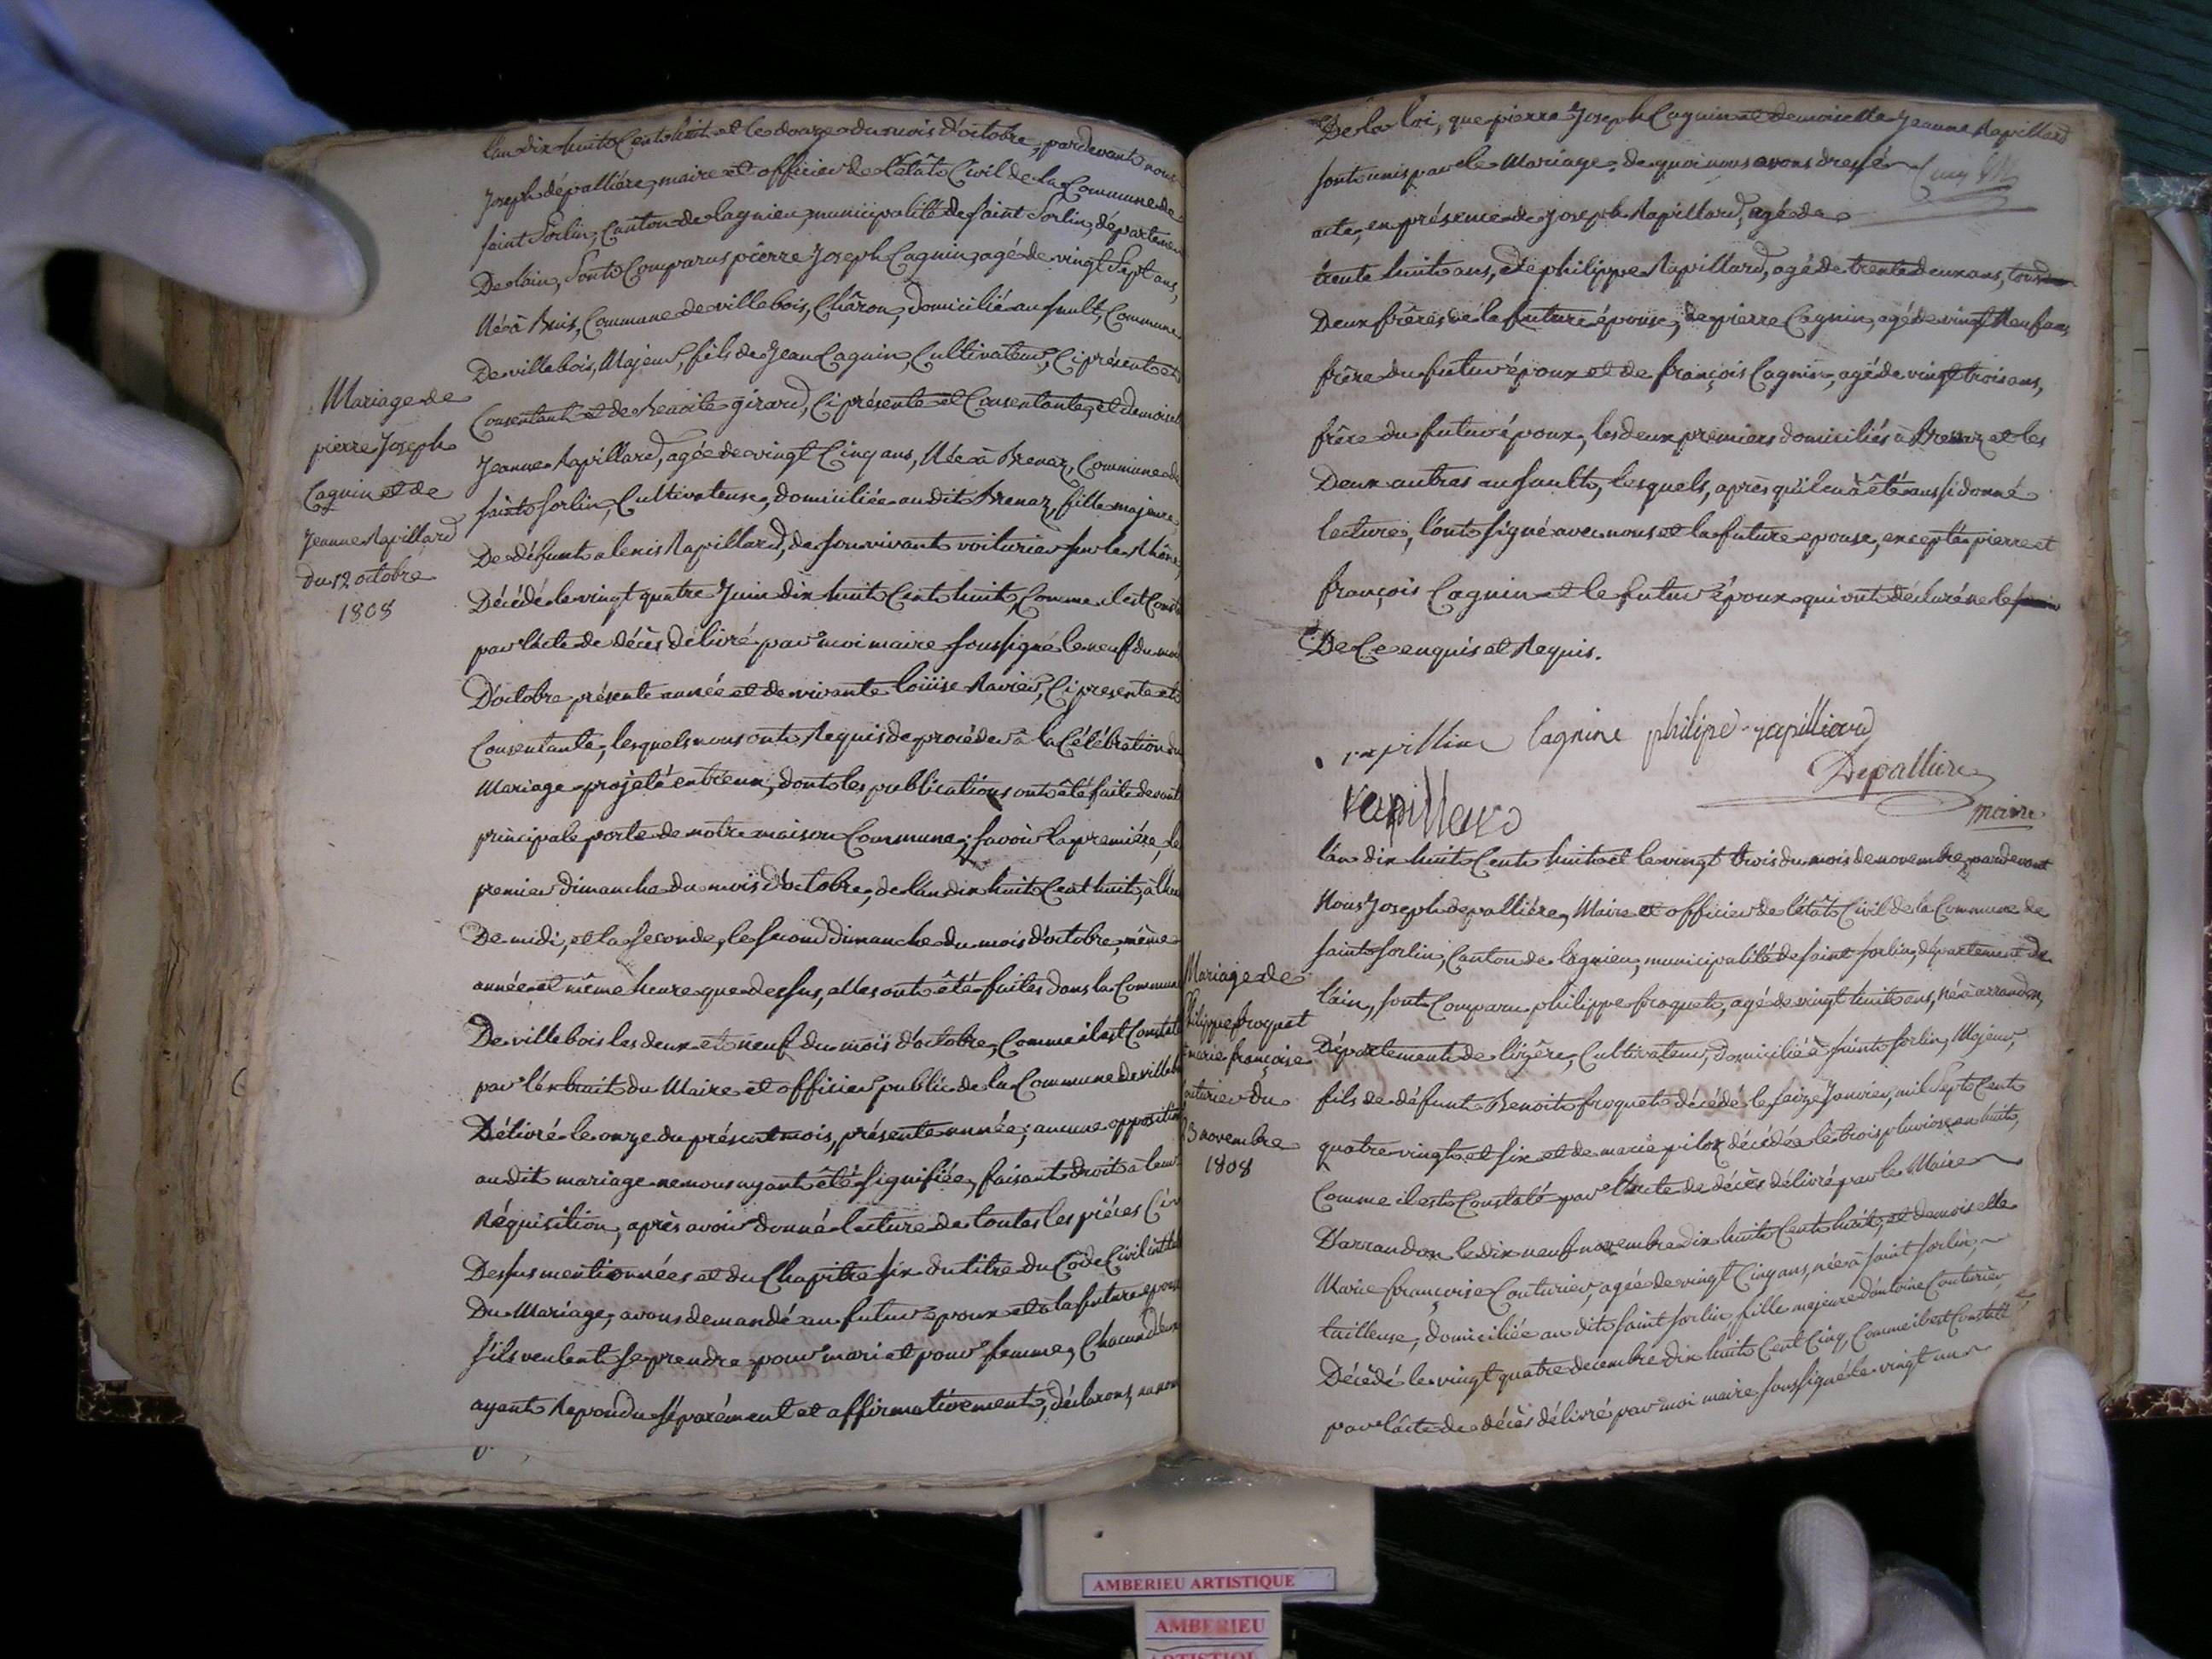 lan dix huit Cent huit et le douze du mois d'octobre, pardevant nous
Joseph dépallière, maire et officier de l'êtât Civil de la Commune de
saint Sorlin, Canton de lagnieu, municipalité de saint Sorlin, départemen
De lain, Sont Comparus pierre Joseph Cagnin, agé de vingt Sept ans,
Né à Buis, Commune de villebois, Châron, domicilié au sault, Commune
De villebois, Majeur, fils de Jean Cagnin, Cultivateur, Ci présent et
Consentant et de benoite girard, Ci présente et Consentante, et demoisel
Jeanne Rapillard, agée de vingt Cinq ans, Née à Brenaz, Commune de
saint sorlin, Cultivateuse, domiciliée au dit Brenaz, fille majeure
De défunt alexis Rapillard, de son vivant voiturier sur le Rhône,
Décédé le vingt quatre Juin dix huit Cent huit, Comme il est Const
par l'acte de décès délivré par moi maire soussigné le neuf du moi
D'octobre présente année et de vivante loüise Ravier, Ci presente et
Consentante, lesquels nous ont Requis de procéder à la Célébration du
Mariage projeté entr'eux, dont les publications ont été faite devant
principale porte de notre maison Commune; savoir la première, le
premier dimanche du mois d'octobre, de l'an dix huit Cent huit, à lheu
De midi, et la seconde, le second dimanche du mois d'octobre, même
année et même heure que dessus, elles ont été faites dans la Commun
De villebois les deux et neuf du mois d'octobre, Comme il est Constaté
par l'éxtrait du Maire et officier public de la Commune de villeb
Délivré le onze du présent mois, présente année; aucune opposition
au dit mariage ne nous ayant été signifiée, faisant droit à leur
Réquisition, après avoir donné lecture de toutes les pièces Ci
Dessus mentionnées et du Chapitre six du titre du Code Civil intitu
Du Mariage, avons demandé au futur époux et à la future epou
s'ils veulent se prendre pour mari et pour femme, Chacun d'eux
ayant Repondu séparément et affirmativement, déclarons, au nom
Mariage de
pierre Joseph
Cagnin et de
Jeanne Rapillard
du 12 octobre
1808
De la loi, que pierre Joseph Cagnin et demoiselle Jeanne Rapillard
sont unis par le Mariage. de quoi nous avons dressé
acte, en présence de Joseph Rapillard, agé de
trente huit ans, de philippe Rapillard, agé de trente deux ans, tous
Deux frères de la future épouse, de pierre Cagnin, agé de vingt Neuf ans,
frère du futur époux et de françois Cagnin, agé de vingt trois ans,
frère du futur époux, les deux premiers domiciliés à Brenaz et les
Deux autres au sault, lesquels, après qu'il en à été aussi donné
lecture, l'ont signé avec nous et la future epouse, excepté pierre et
françois Cagnin et le futur époux qui ont déclaré ne le
De Ce enquis et Requis.
Cagnine philipe rapilliard
Depalliere
maire
rapillard
lan dix huit Cent huit et le vingt trois du mois de novembre, pardevant
Nous Joseph depallière, Maire et officier de l'êtât Civil de la Commune de
saint sorlin, Canton de lagnieu, municipalité de saint sorlin, département de
lain, sont Comparu philippe froquet, agé de vingt huit ans, né à arrandon,
Département de lizère, Cultivateur, domicilié à saint sorlin, Majeur,
fils de défunt Benoit froquet décédé le seize Janvier, mil Sept Cent
quatre vingt et six et de marie pilox décédée le trois pluviose an huit,
Comme il est Constaté par l'acte de décès délivré par le Maire
D'arrandon le dix neuf novembre dix huit Cent huit, et demoiselle
Marie françoise Couturier, agée de vingt Cinq ans, née à saint sorlin,
tailleuse, domiciliée au dit saint sorlin, fille majeure d'antoine Couturier,
Décédé le vingt quatre decembre dix huit Cent Cinq, Comme il est Constaté
par l'acte de décès délivré par moi maire soussigné le vingt un
Mariage de
philippe froquet
et marie françoise
Couturier du
23 novembre
1808
AMBERIEU ARTISTIQUE
AMBERIEU
ARTISTIQUE